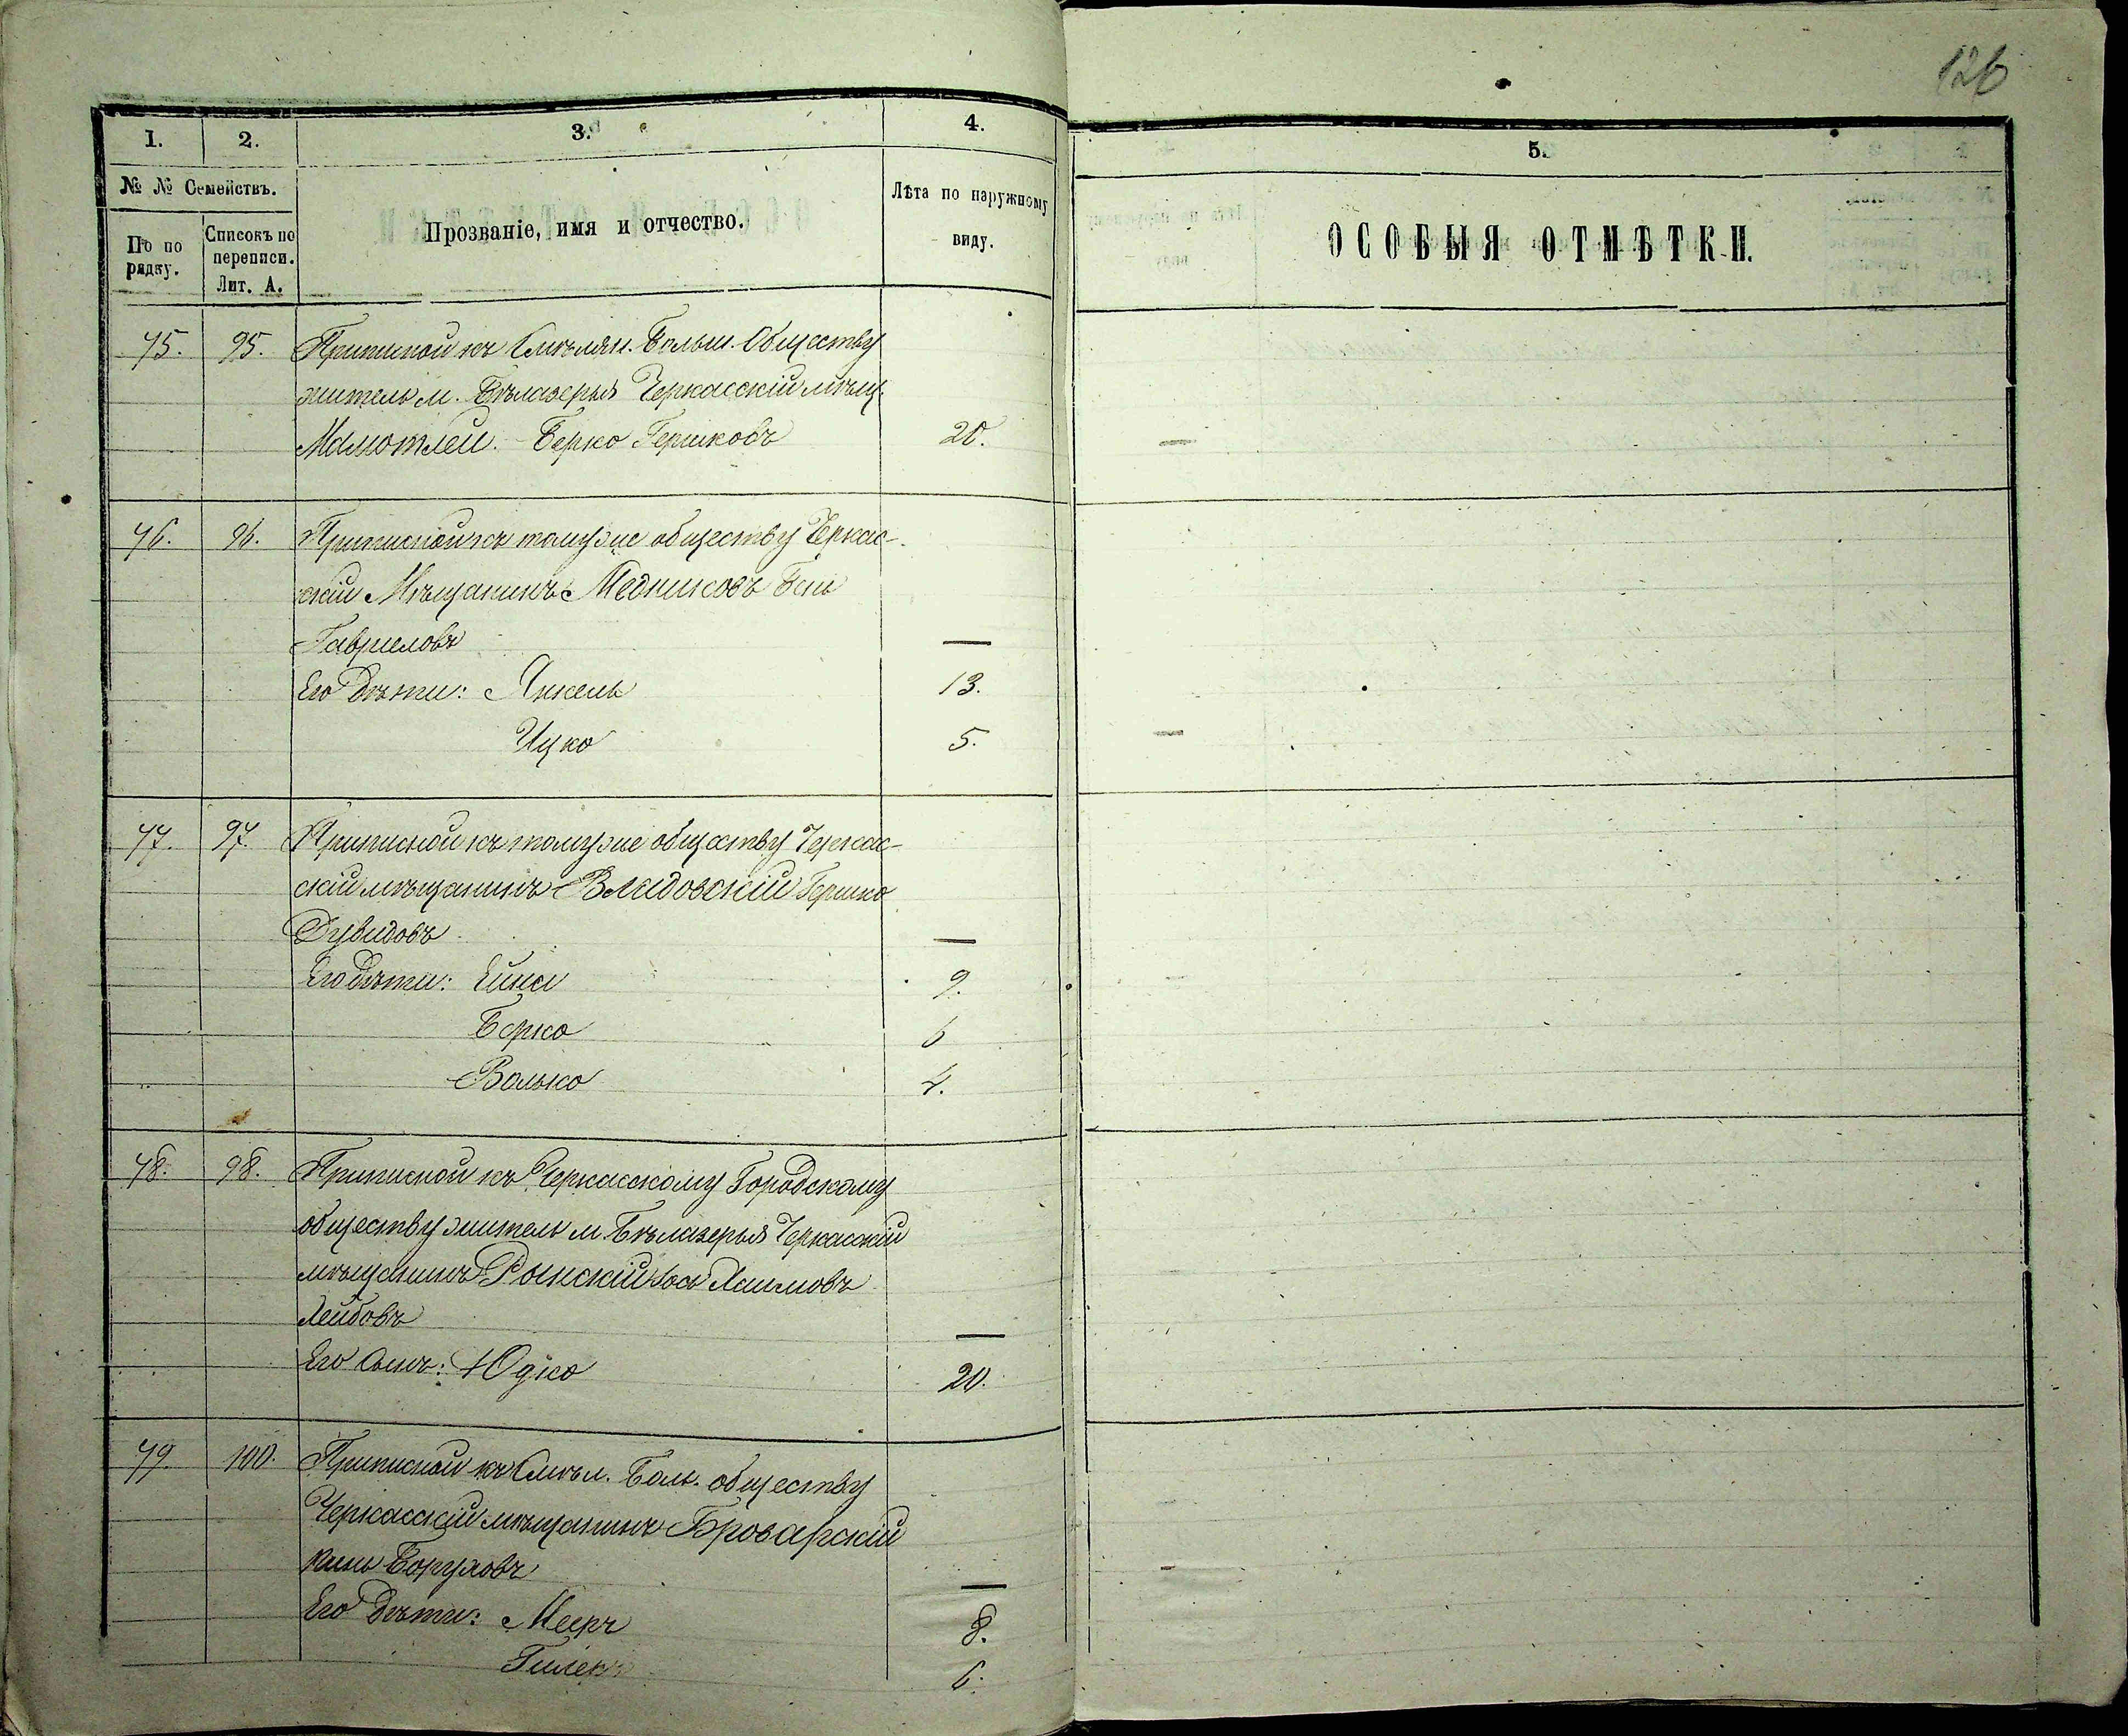 126
1. 2. 3. 4. 5.
№ № Семействъ.
По по рядку.
Списокъ по переписи. Лит. А.
Прозваніе, имя и отчество.
Лѣта по наружному виду.
ОСОБЫЯ ОТМѢТКИ.
75. 95. Приписной къ Смѣлян. Больш. Обществу
житель м. Бѣлазерья Черкасскій мѣщ.
Мамотлей. Берко Гершковъ 20. —
76. 96. Приписной къ томуже обществу Черкас-
скій Мѣщанинъ Медниковъ Бень
Гавриловъ —
Его Дѣти: Янкель 13.
Ицко 5. —
77. 97. Приписной къ томуже обществу Черкас-
скій мѣщанинъ Гершко
Дувидовъ —
Его дѣти: 9.
Берко 6
Волько 4.
78. 98. Приписной къ Черкасскому Городскому
обществу житель м. Бѣлазерья Черкасскій
мѣщанинъ Рынскій Іось Хаимовъ
Лейбовъ —
Его Сынъ: Юдко 20.
79. 100. Приписной къ Смѣл. Боль. обществу
Черкасскій мѣщанинъ Броварскій
Боруховъ —
Его Дѣти: Мееръ 8.
6.